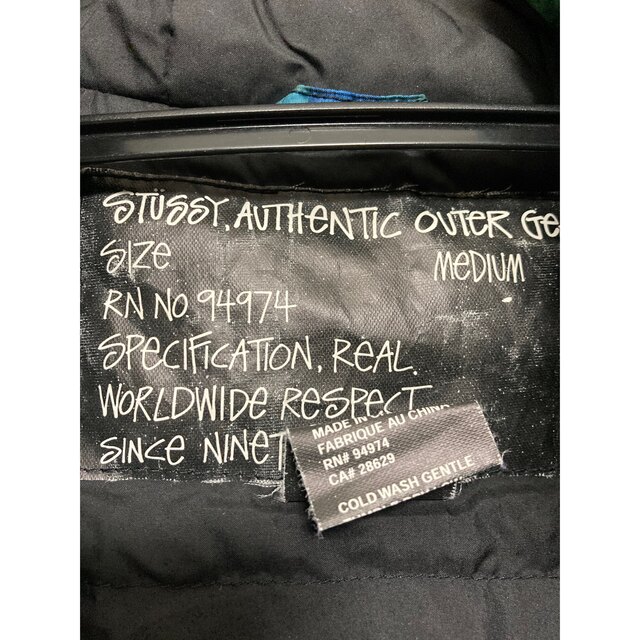 STÜSSY, AUTHENTIC OUTER GE
SIZE MEDIUM
RN NO. 94974
SPECIFICATION, REAL.
WORLDWIDE RESPECT
SINCE NINET
MADE IN
FABRIQUE AU CHINA
RN# 94974
CA# 28629
COLD WASH GENTLE